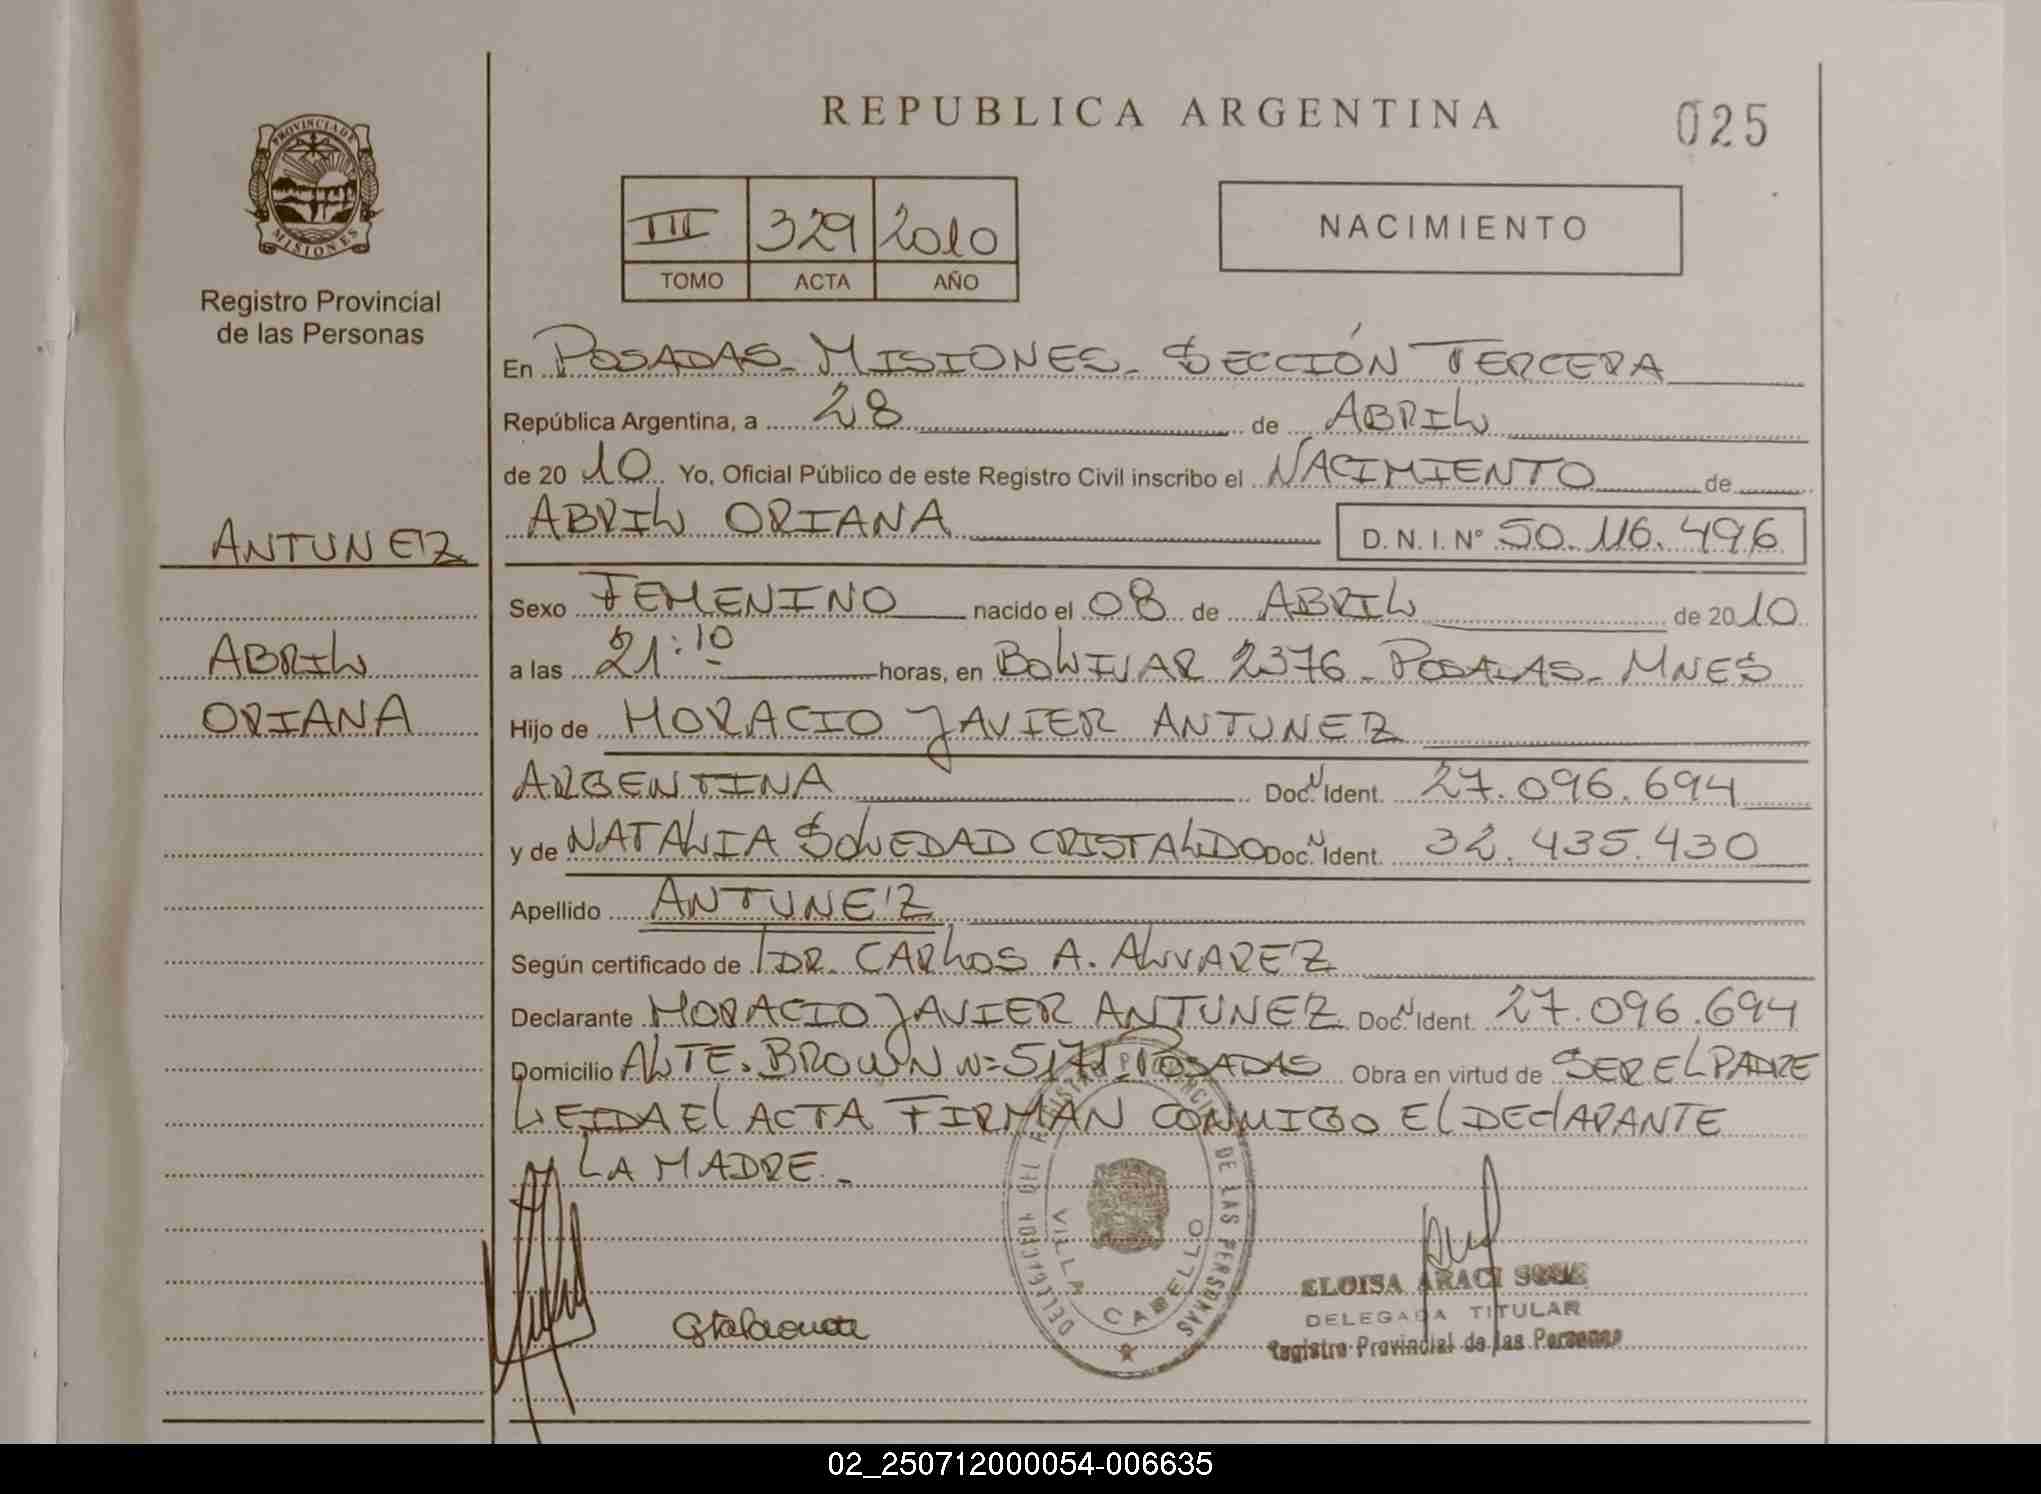 PROVINCIA DE
MISIONES
Registro Provincial
de las Personas
ANTUNEZ
ABRIL
ORIANA
REPUBLICA ARGENTINA
025
III 329 2010
TOMO ACTA AÑO
NACIMIENTO
En POSADAS - MISIONES - SECCIÓN TERCERA
República Argentina, a 28 de ABRIL
de 20 10 Yo, Oficial Público de este Registro Civil inscribo el NACIMIENTO de
ABRIL ORIANA D.N.I. N° 50.116.496
Sexo FEMENINO nacido el 08 de ABRIL de 20 10
a las 21:10 horas, en BOLIVAR 2376 - POSADAS - MNES
Hijo de HORACIO JAVIER ANTUNEZ
ARGENTINA Doc. N Ident. 27.096.694
y de NATALIA SOLEDAD CRISTALDO Doc. N Ident. 32.435.430
Apellido ANTUNEZ
Según certificado de DR. CARLOS A. ALVAREZ
Declarante HORACIO JAVIER ANTUNEZ Doc. N Ident. 27.096.694
Domicilio ALTE. BROWN N= 5171 POSADAS Obra en virtud de SER EL PADRE
LEIDA EL ACTA FIRMAN CONMIGO EL DECLARANTE
Y LA MADRE.-
DELEGACION DEL REGISTRO PROVINCIAL DE LAS PERSONAS
VILLA CABELLO
ELOISA ARACI
DELEGADA TITULAR
Registro Provincial de las Personas
02_250712000054-006635